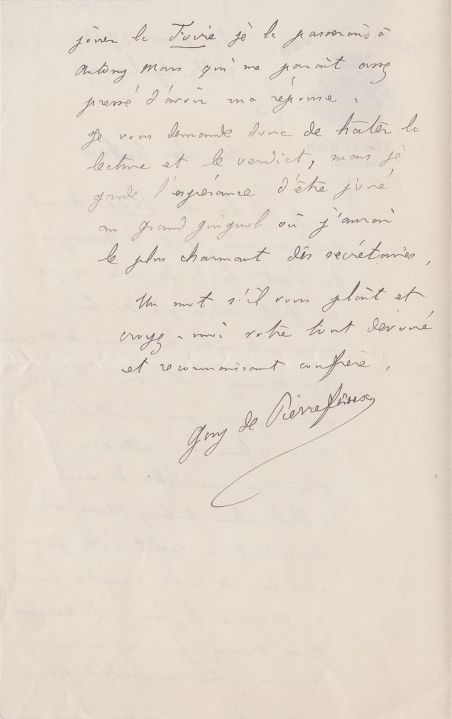 jouer la Furie je la passerais à
Antony Mars qui me paraît assez
pressé d'avoir ma réponse.
Je vous demande donc de hâter la
lecture et le verdict, mais je
garde l'espérance d'être joué
au grand guignol où j'aurai
le plus charmant des secrétaires.
Un mot s'il vous plaît et
croyez-moi votre tout dévoué
et reconnaissant confrère.
Guy de Pierrefeux